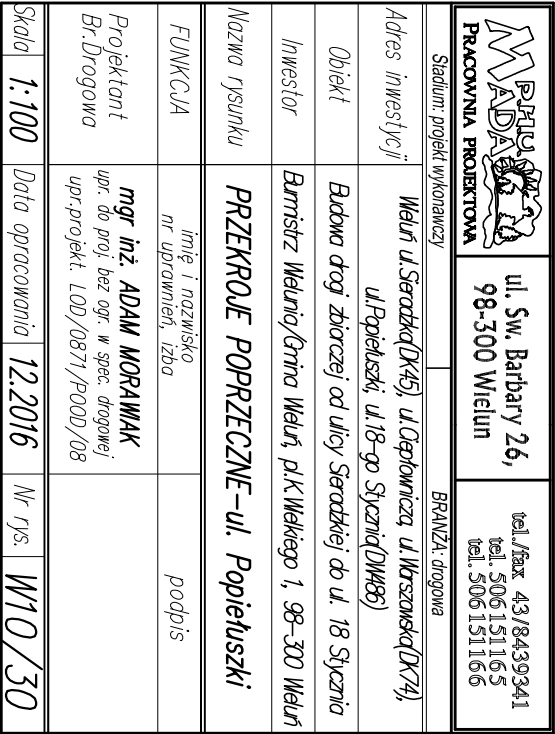 P.H.U.
MADA
PRACOWNIA PROJEKTOWA
ul. Sw. Barbary 26,
98-300 Wielun
tel./fax 43/8439341
tel. 506151165
tel. 506151166
Stadium: projekt wykonawczy
BRANŻA: drogowa
Adres inwestycji
Wieluń ul.Sieradzka(DK45), ul.Ciepłownicza, ul.Warszawska(DK74),
ul.Popiełuszki, ul.18-go Stycznia(DW486)
Obiekt
Budowa drogi zbiorczej od ulicy Sieradzkiej do ul. 18 Stycznia
Inwestor
Burmistrz Wielunia/Gmina Wieluń, pl.K.Wielkiego 1, 98-300 Wieluń
Nazwa rysunku
PRZEKROJE POPRZECZNE-ul. Popiełuszki
FUNKCJA
imię i nazwisko
nr uprawnień, izba
podpis
Projektant
Br.Drogowa
mgr inż ADAM MORAWIAK
upr. do proj. bez ogr. w spec. drogowej
upr.projekt. LOD/0871/POOD/08
Skala
1:100
Data opracowania
12.2016
Nr rys.
W10/30